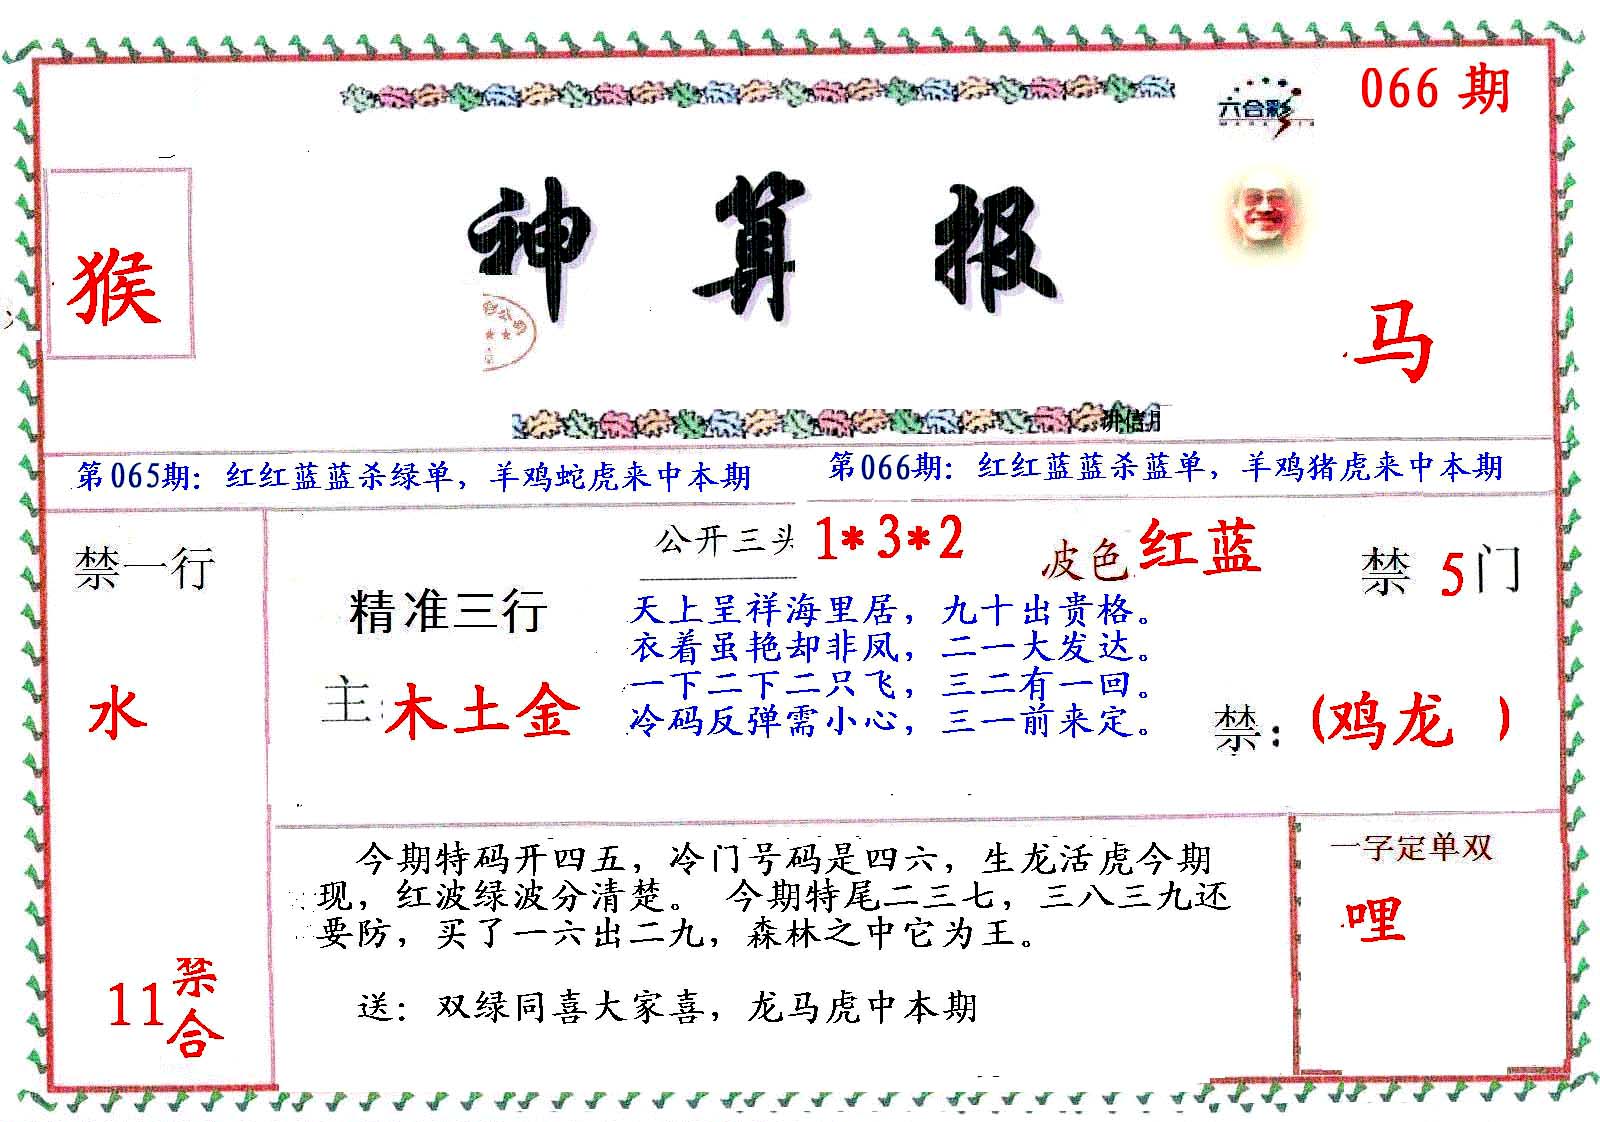 066 期
六合彩
神算报
猴
马
讲信用
第065期：红红蓝蓝杀绿单，羊鸡蛇虎来中本期
第066期：红红蓝蓝杀蓝单，羊鸡猪虎来中本期
禁一行
水
11禁合
精准三行
主：木土金
公开三头 1*3*2
波色 红蓝
禁 5 门
天上呈祥海里居，九十出贵格。
衣着虽艳却非凤，二一大发达。
一下二下二只飞，三二有一回。
冷码反弹需小心，三一前来定。
禁：(鸡龙 )
今期特码开四五，冷门号码是四六，生龙活虎今期
现，红波绿波分清楚。 今期特尾二三七，三八三九还
要防，买了一六出二九，森林之中它为王。
送：双绿同喜大家喜，龙马虎中本期
一字定单双
哩